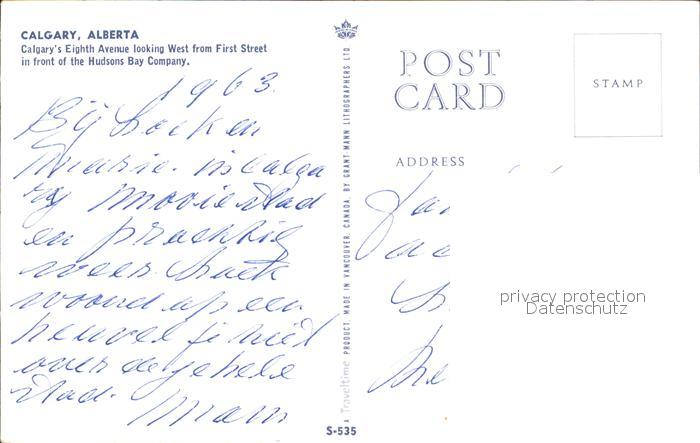 CALGARY, ALBERTA
Calgary's Eighth Avenue looking West from First Street
in front of the Hudsons Bay Company.
1963.
Bij
Marie. in Calga
ry mooie stad
en prachtig
weer.
woond op een
heuvel je ziet
over de gehele
stad.
Mam
A Traveltime PRODUCT. MADE IN VANCOUVER, CANADA, BY GRANT-MANN LITHOGRAPHERS LTD
S-535
POST
CARD
STAMP
ADDRESS
privacy protection
Datenschutz